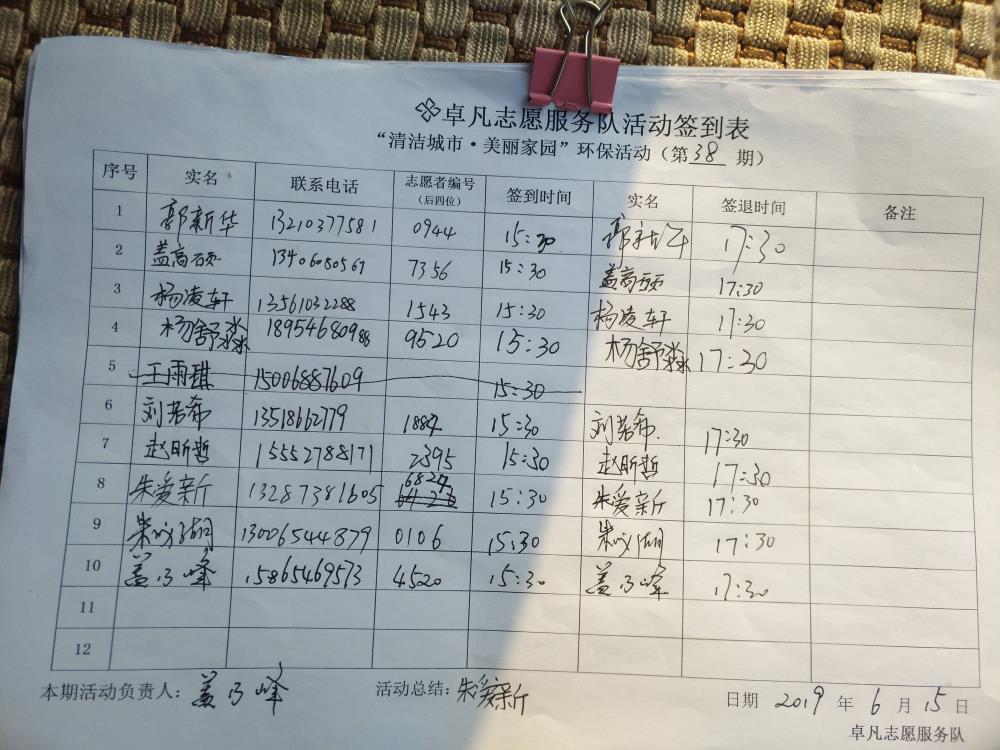 卓凡志愿服务队活动签到表
“清洁城市·美丽家园”环保活动（第38期）
序号 实名 联系电话 志愿者编号（后四位） 签到时间 实名 签退时间 备注
1 郭新华 13210377581 0944 15:30 郭新华 17:30
2 盖高硕 13406080567 7356 15:30 盖高硕 17:30
3 杨凌轩 13561032288 1543 15:30 杨凌轩 17:30
4 杨舒淼 18954680988 9520 15:30 杨舒淼 17:30
5 王雨琪 15006887609 15:30
6 刘若希 13518662779 1884 15:30 刘若希 17:30
7 赵昕哲 15552788171 2395 15:30 赵昕哲 17:30
8 朱爱新 13287381605 6824 15:30 朱爱新 17:30
9 13006544879 0106 15:30 17:30
10 盖乃峰 15865469573 4520 15:30 盖乃峰 17:30
11
12
本期活动负责人：盖乃峰 活动总结：朱爱新 日期 2019 年 6 月 15 日
卓凡志愿服务队